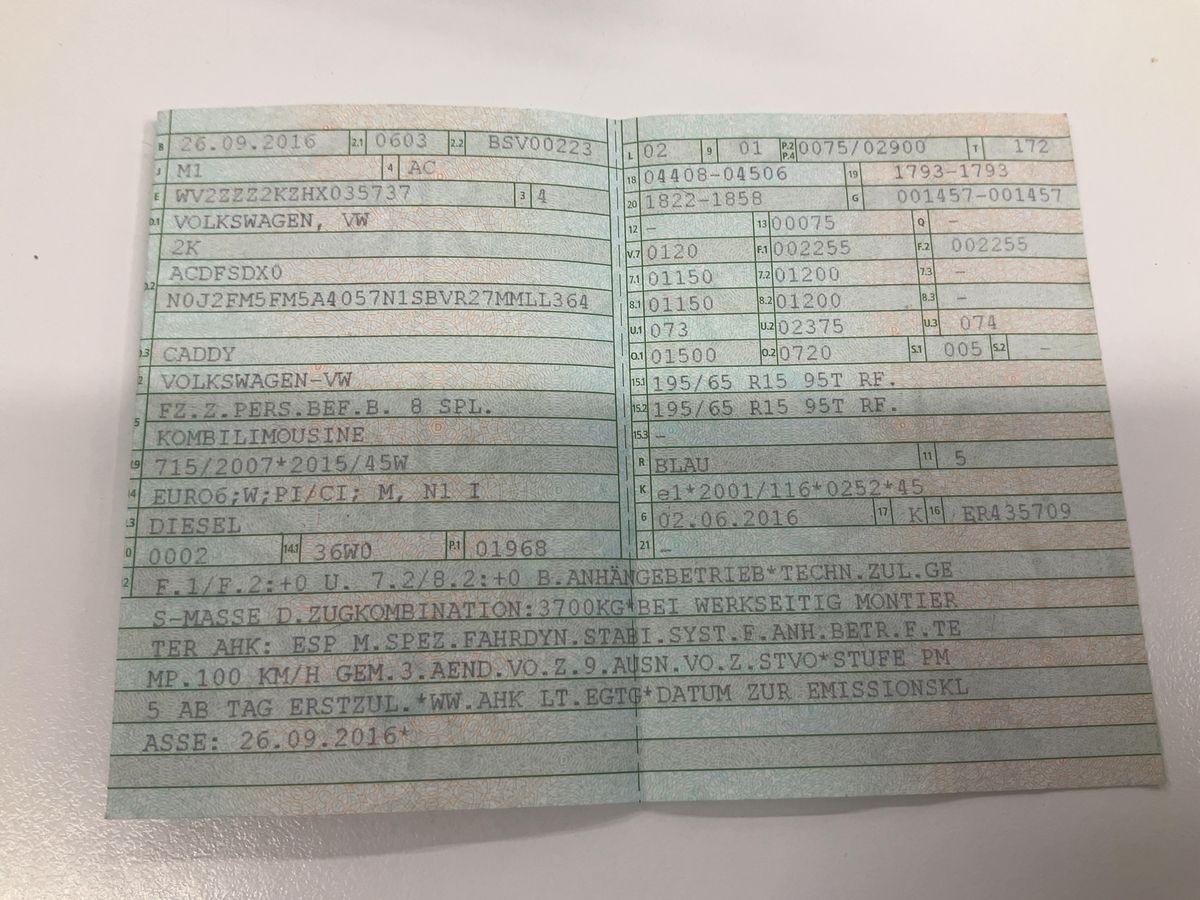 B 26.09.2016 2.1 0603 2.2 BSV00223
J M1 4 AC
E WV2ZZZ2KZHX035737 3 4
D.1 VOLKSWAGEN, VW
2K
D.2 ACDFSDX0
N0J2FM5FM5A4057N1SBVR27MMLL364
D.3 CADDY
2 VOLKSWAGEN-VW
FZ.Z.PERS.BEF.B. 8 SPL.
5 KOMBILIMOUSINE
V.9 715/2007*2015/45W
14 EURO6;W;PI/CI; M, N1 I
P.3 DIESEL
10 0002 14.1 36W0 P.1 01968
L 02 9 01 P.2 P.4 0075/02900 T 172
18 04408-04506 19 1793-1793
20 1822-1858 G 001457-001457
12 – 13 00075 Q –
V.7 0120 F.1 002255 F.2 002255
7.1 01150 7.2 01200 7.3 –
8.1 01150 8.2 01200 8.3 –
U.1 073 U.2 02375 U.3 074
O.1 01500 O.2 0720 S.1 005 S.2 –
15.1 195/65 R15 95T RF.
15.2 195/65 R15 95T RF.
15.3 –
R BLAU 11 5
K e1*2001/116*0252*45
6 02.06.2016 17 K 16 ER435709
21 –
22 F.1/F.2:+0 U. 7.2/8.2:+0 B.ANHÄNGEBETRIEB*TECHN.ZUL.GE
S-MASSE D.ZUGKOMBINATION:3700KG*BEI WERKSEITIG MONTIER
TER AHK: ESP M.SPEZ.FAHRDYN.STABI.SYST.F.ANH.BETR.F.TE
MP.100 KM/H GEM.3.AEND.VO.Z.9.AUSN.VO.Z.STVO*STUFE PM
5 AB TAG ERSTZUL.*WW.AHK LT.EGTG*DATUM ZUR EMISSIONSKL
ASSE: 26.09.2016*